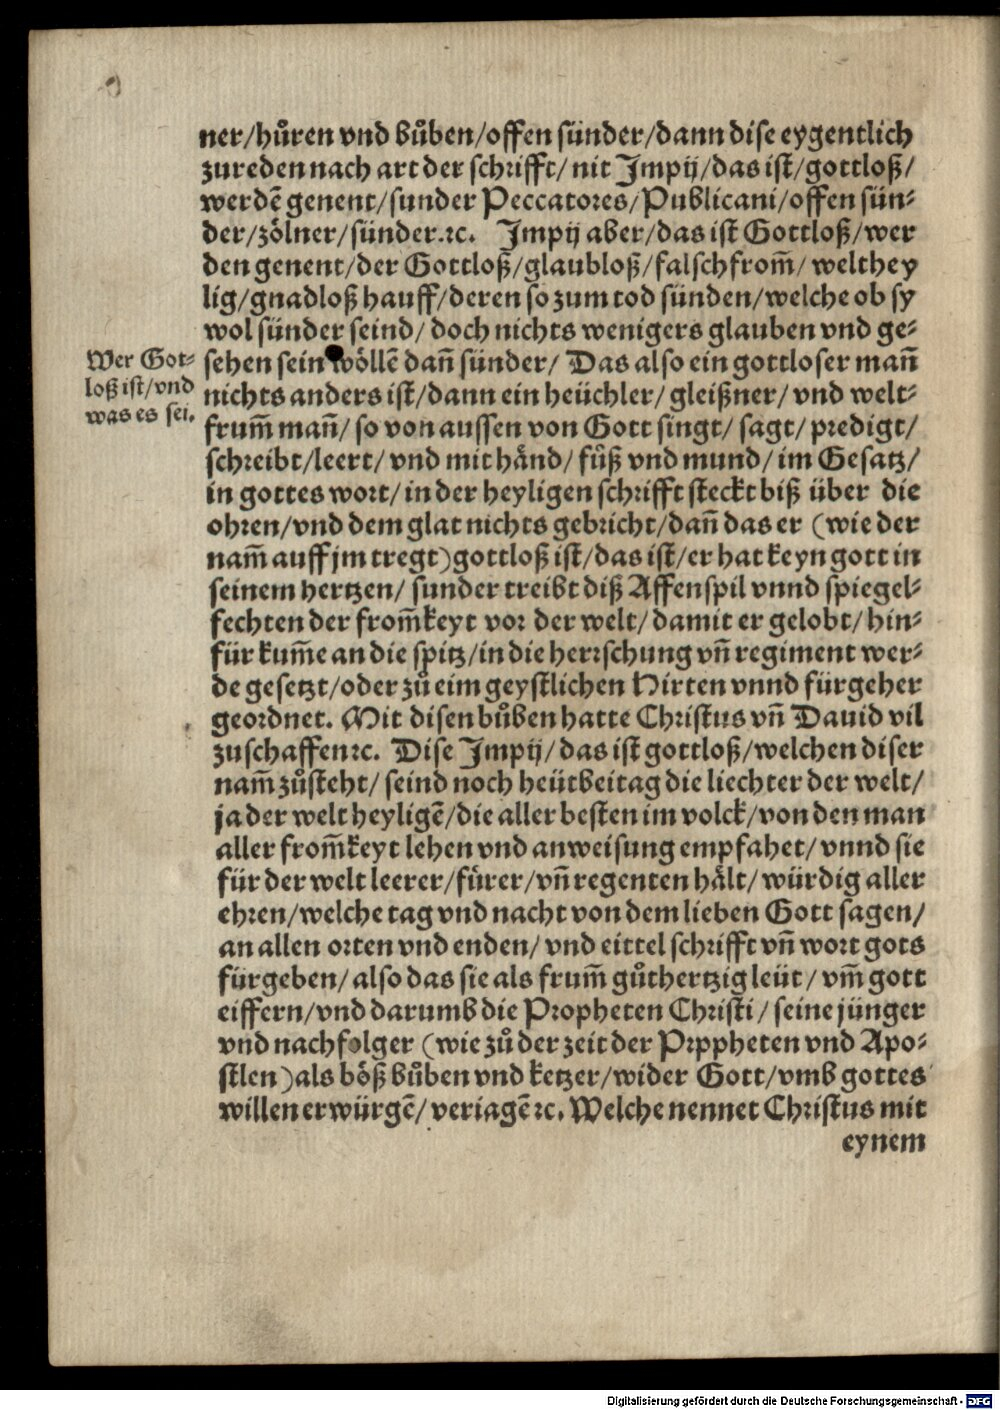 ner/hůren vnd bůben/offen sünder/dann dise eygentlich
zureden nach art der schrifft/ nit Impij/das ist/gottloß/
werdē genent/sunder Peccatores/Publicani/offen sün-
der/zölner/sünder.ꝛc. Impij aber/das ist Gottloß/wer
den genent/der Gottloß/glaubloß/falschfrom̄/ welthey
lig/gnadloß hauff/deren so zum tod sünden/welche ob sy
wol sünder seind/ doch nichts wenigers glauben vnd ge-
Wer Got-
loß ist/vnd
was es sei.
sehen sein wöllē dan̄ sünder/ Das also ein gottloser man̄
nichts anders ist/dann ein heüchler/gleißner/ vnd welt-
frum̄ man̄/ so von aussen von Gott singt/ sagt/ predigt/
schreibt/leert/ vnd mit händ/ fůß vnd mund/ im Gesatz/
in gottes wort/ in der heyligen schrifft steckt biß über die
ohren/vnd dem glat nichts gebricht/dan̄ das er (wie der
nam̄ auff jm tregt) gottloß ist/das ist/er hat keyn gott in
seinem hertzen/ sunder treibt diß Affenspil vnnd spiegel-
fechten der from̄keyt vor der welt/ damit er gelobt/ hin-
für kum̄e an die spitz/in die herrschung vn̄ regiment wer-
de gesetzt/oder zů eim geystlichen Hirten vnnd fürgeher
geordnet. Mit disen bůben hatte Christus vn̄ Dauid vil
zuschaffen ꝛc. Dise Impij/das ist gottloß/welchen diser
nam̄ zůsteht/ seind noch heütbeitag die liechter der welt/
ja der welt heyligē/die aller besten im volck/von den man
aller from̄keyt lehen vnd anweisung empfahet/ vnnd sie
für der welt leerer/fürer/vn̄ regenten hält/ würdig aller
ehren/welche tag vnd nacht von dem lieben Gott sagen/
an allen orten vnd enden/ vnd eittel schrifft vn̄ wort gots
fürgeben/ also das sie als frum̄ gůthertzig leüt/ vm̄ gott
eiffern/vnd darumb die Propheten Christi/ seine jünger
vnd nachfolger (wie zů der zeit der Prppheten vnd Apo-
stlen) als böß bůben vnd ketzer/wider Gott/vmb gottes
willen erwürgē/ veriagē ꝛc. Welche nennet Christus mit
eynem
Digitalisierung gefördert durch die Deutsche Forschungsgemeinschaft - DFG